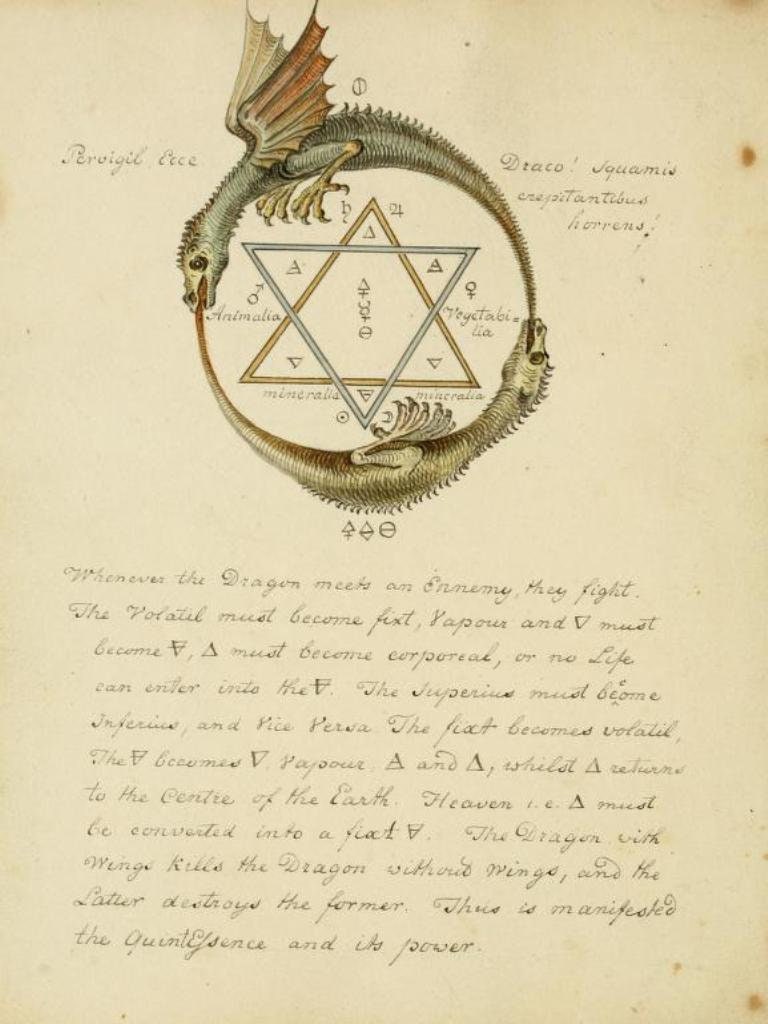 Pervigil Ecce
Draco! squamis
crepitantibus
horrens!
♄ ♃
🜂
🜁 🜁
♂ ♀
🜍
☿
🜔
Animalia
Vegetabi=
lia
🜄 🜄
mineralia 🜃 mineralia
☉ ☽
Whenever the Dragon meets an Ennemy, they fight.
The Volatil must become fixt, Vapour and 🜄 must
become 🜃, 🜂 must become corporeal, or no Life
can enter into the 🜃. The Superius must become
Inferius, and Vice Versa. The fixt becomes volatil,
The 🜃 becomes 🜄 Vapour 🜁 and 🜂, whilst 🜂 returns
to the Centre of the Earth. Heaven i.e. 🜂 must
be converted into a fixt 🜃. The Dragon with
Wings kills the Dragon without Wings, and the
Latter destroys the former. Thus is manifested
the QuintEssence and its power.